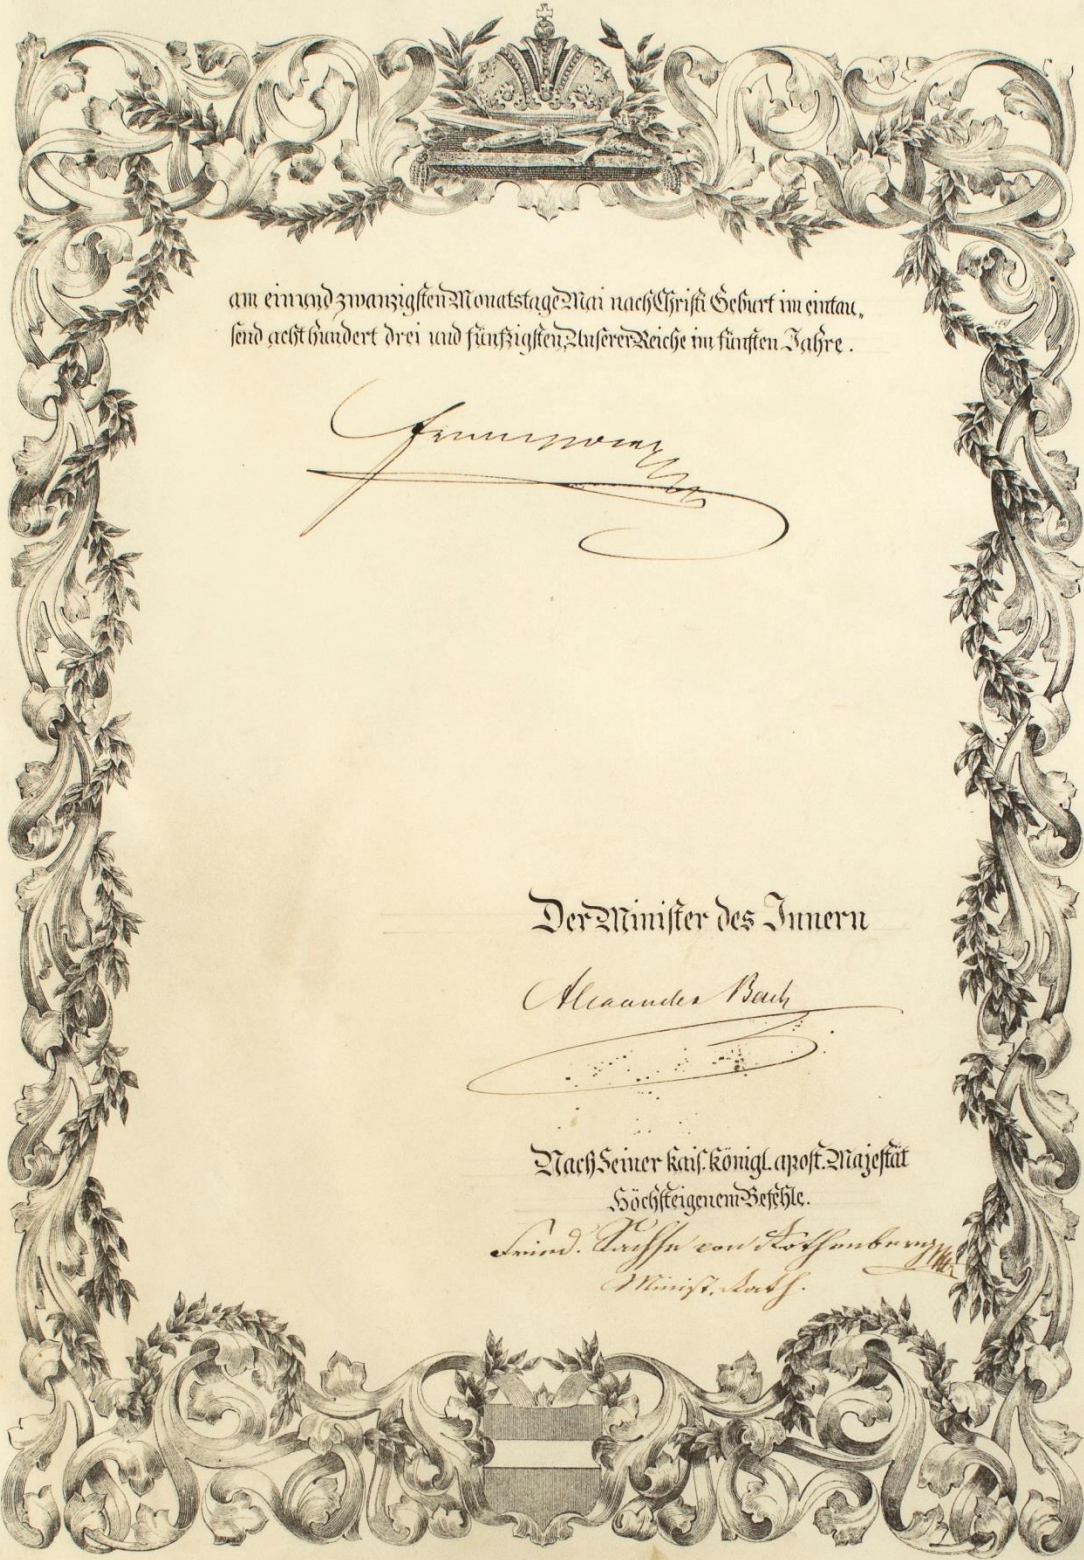 am ein und zwanzigsten Monatstage Mai nach Christi Geburt im eintau„
send acht hundert drei und fünfzigsten, Unserer Reiche im fünften Jahre.
Franz Joseph
Der Minister des Innern
Alexander Bach
Nach Seiner kais. königl. apost. Majestät
Höchsteigenem Befehle.
Fried. Sachse von Rothenberg
Minist. Rath.